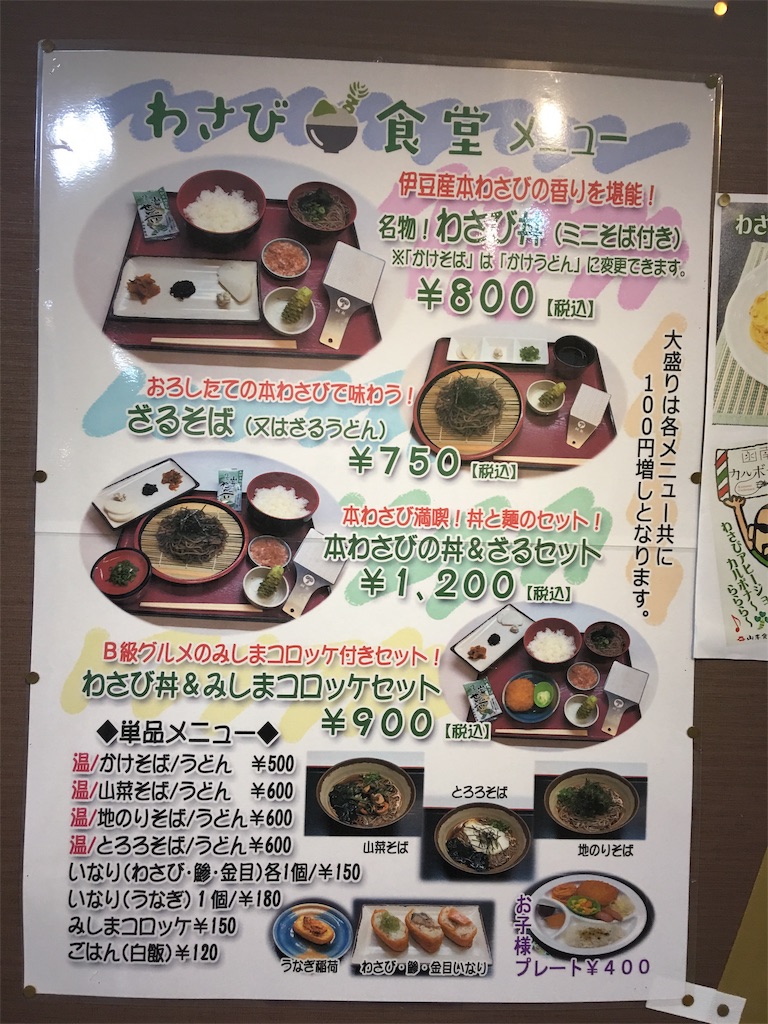 わさび食堂メニュー
伊豆産本わさびの香りを堪能！
名物！わさび丼（ミニそば付き）
※「かけそば」は「かけうどん」に変更できます。
￥800【税込】
おろしたての本わさびで味わう！
ざるそば（又はざるうどん）
￥750【税込】
大盛りは各メニュー共に
100円増しとなります。
本わさび満喫！丼と麺のセット！
本わさびの丼＆ざるセット
￥1,200【税込】
B級グルメのみしまコロッケ付きセット！
わさび丼＆みしまコロッケセット
￥900【税込】
◆単品メニュー◆
温/かけそば/うどん ￥500
温/山菜そば/うどん ￥600
温/地のりそば/うどん￥600
温/とろろそば/うどん￥600
いなり（わさび・鯵・金目）各1個/￥150
いなり（うなぎ）1個/￥180
みしまコロッケ￥150
ごはん（白飯）￥120
山菜そば
とろろそば
地のりそば
うなぎ稲荷
わさび・鯵・金目いなり
お子様
プレート￥400
わさ
カルボ
わさびアヒージョ
カルボナ～
ららら～♪